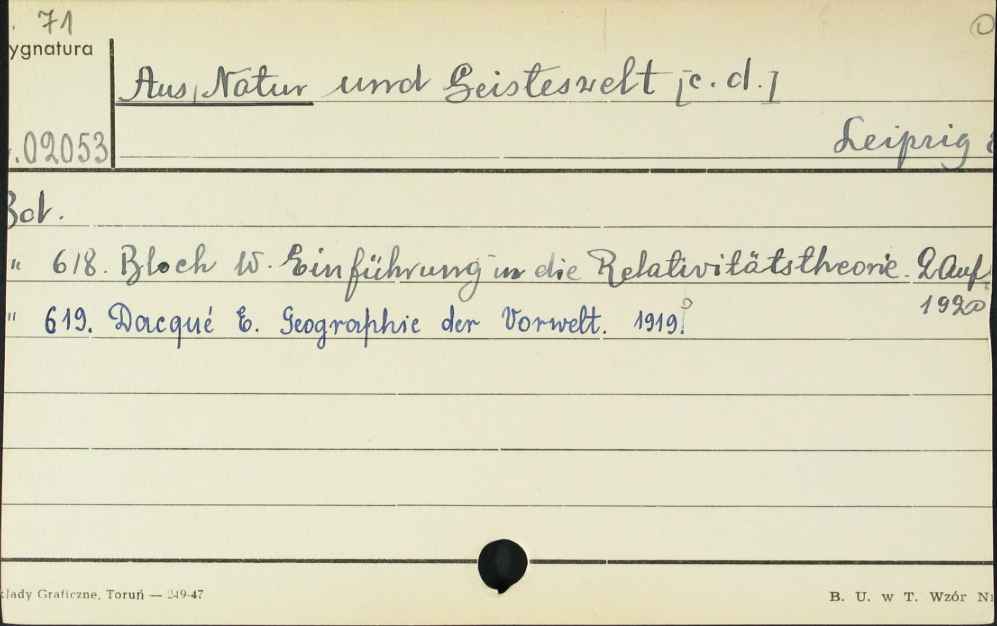 71
ygnatura
Aus Natur und Geisteswelt [c.d.]
.02053
Leipzig
Bd.
" 618. Bloch W. Einführung in die Relativitätstheorie. 2 Auf.
1920
" 619. Dacqué E. Geographie der Vorwelt. 1919.
łady Graficzne, Toruń — 249-47
B. U. w T. Wzór Nr